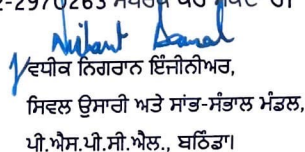 2-2970263
Nishant Bansal
ਵਧੀਕ ਨਿਗਰਾਨ ਇੰਜੀਨੀਅਰ,
ਸਿਵਲ ਉਸਾਰੀ ਅਤੇ ਸਾਂਭ-ਸੰਭਾਲ ਮੰਡਲ,
ਪੀ.ਐਸ.ਪੀ.ਸੀ.ਐਲ., ਬਠਿੰਡਾ।